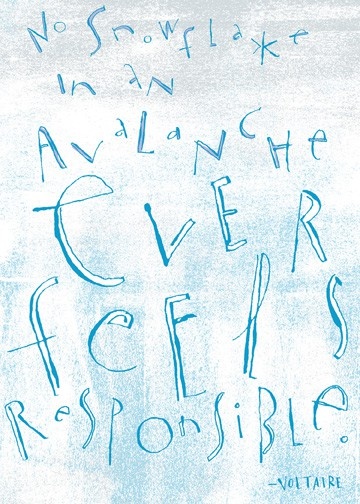 No Snowflake
in an
AvaLaNCHe
EvER
feEls
ResponsiBle.
–VOLTAIRE